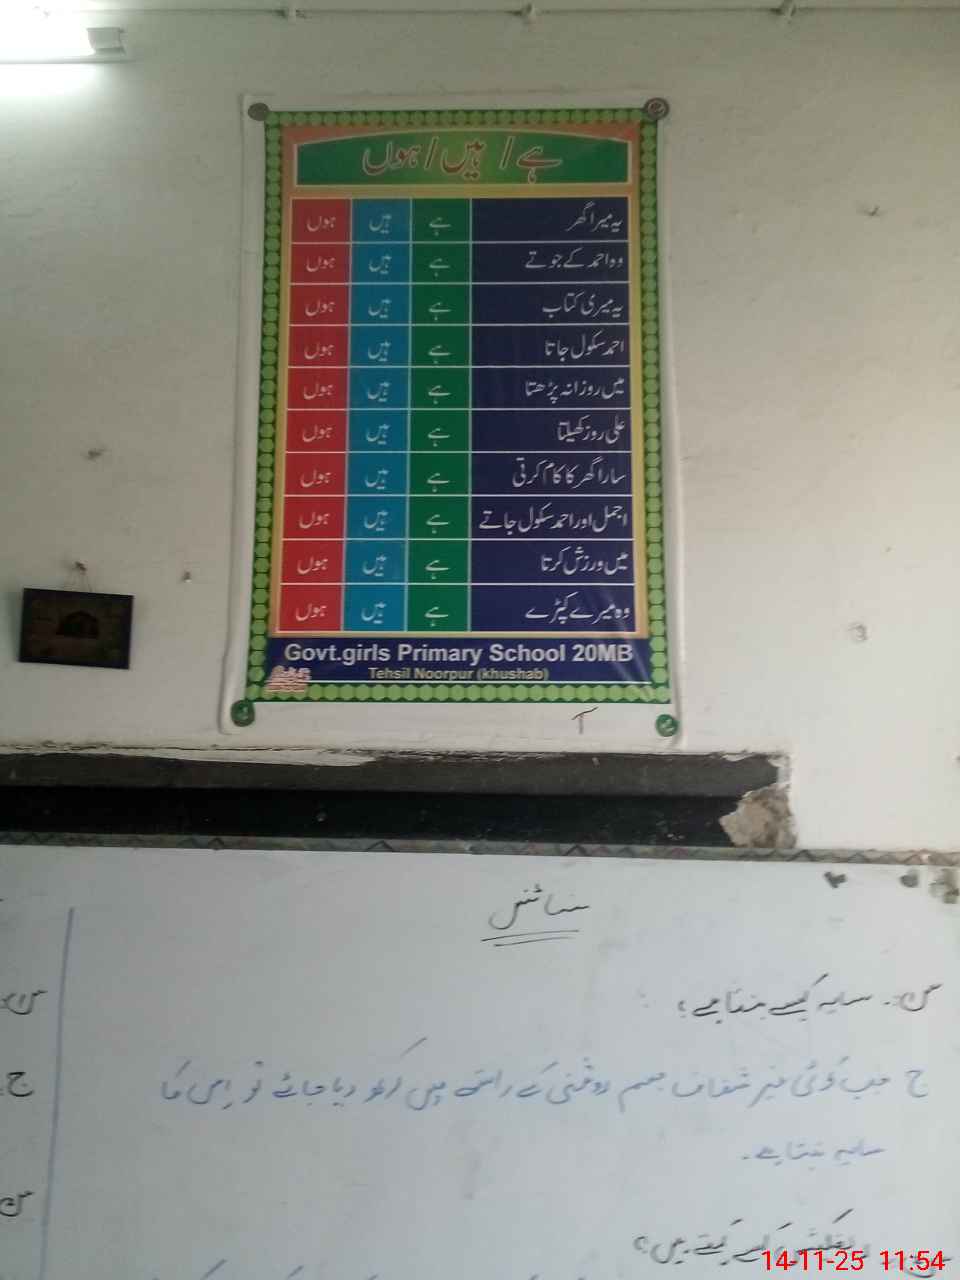 ہے / ہیں / ہوں
یہ میرا گھر ہے ہیں ہوں
وہ احمد کے جوتے ہے ہیں ہوں
یہ میری کتاب ہے ہیں ہوں
احمد سکول جاتا ہے ہیں ہوں
میں روزانہ پڑھتا ہے ہیں ہوں
علی روز کھیلتا ہے ہیں ہوں
سارا گھر کا کام کرتی ہے ہیں ہوں
اجمل اور احمد سکول جاتے ہے ہیں ہوں
میں ورزش کرتا ہے ہیں ہوں
وہ میرے کپڑے ہے ہیں ہوں
Govt.girls Primary School 20MB
Tehsil Noorpur (khushab)
سائنس
س:۔ سایہ کیسے بنتا ہے؟
س:
ج جب کوئی غیر شفاف جسم روشنی کے راستے میں رکھ دیا جائے تو اِس کا
ج:
سایہ بنتا ہے۔
س
کسے کہتے ہیں؟
14-11-25 11:54